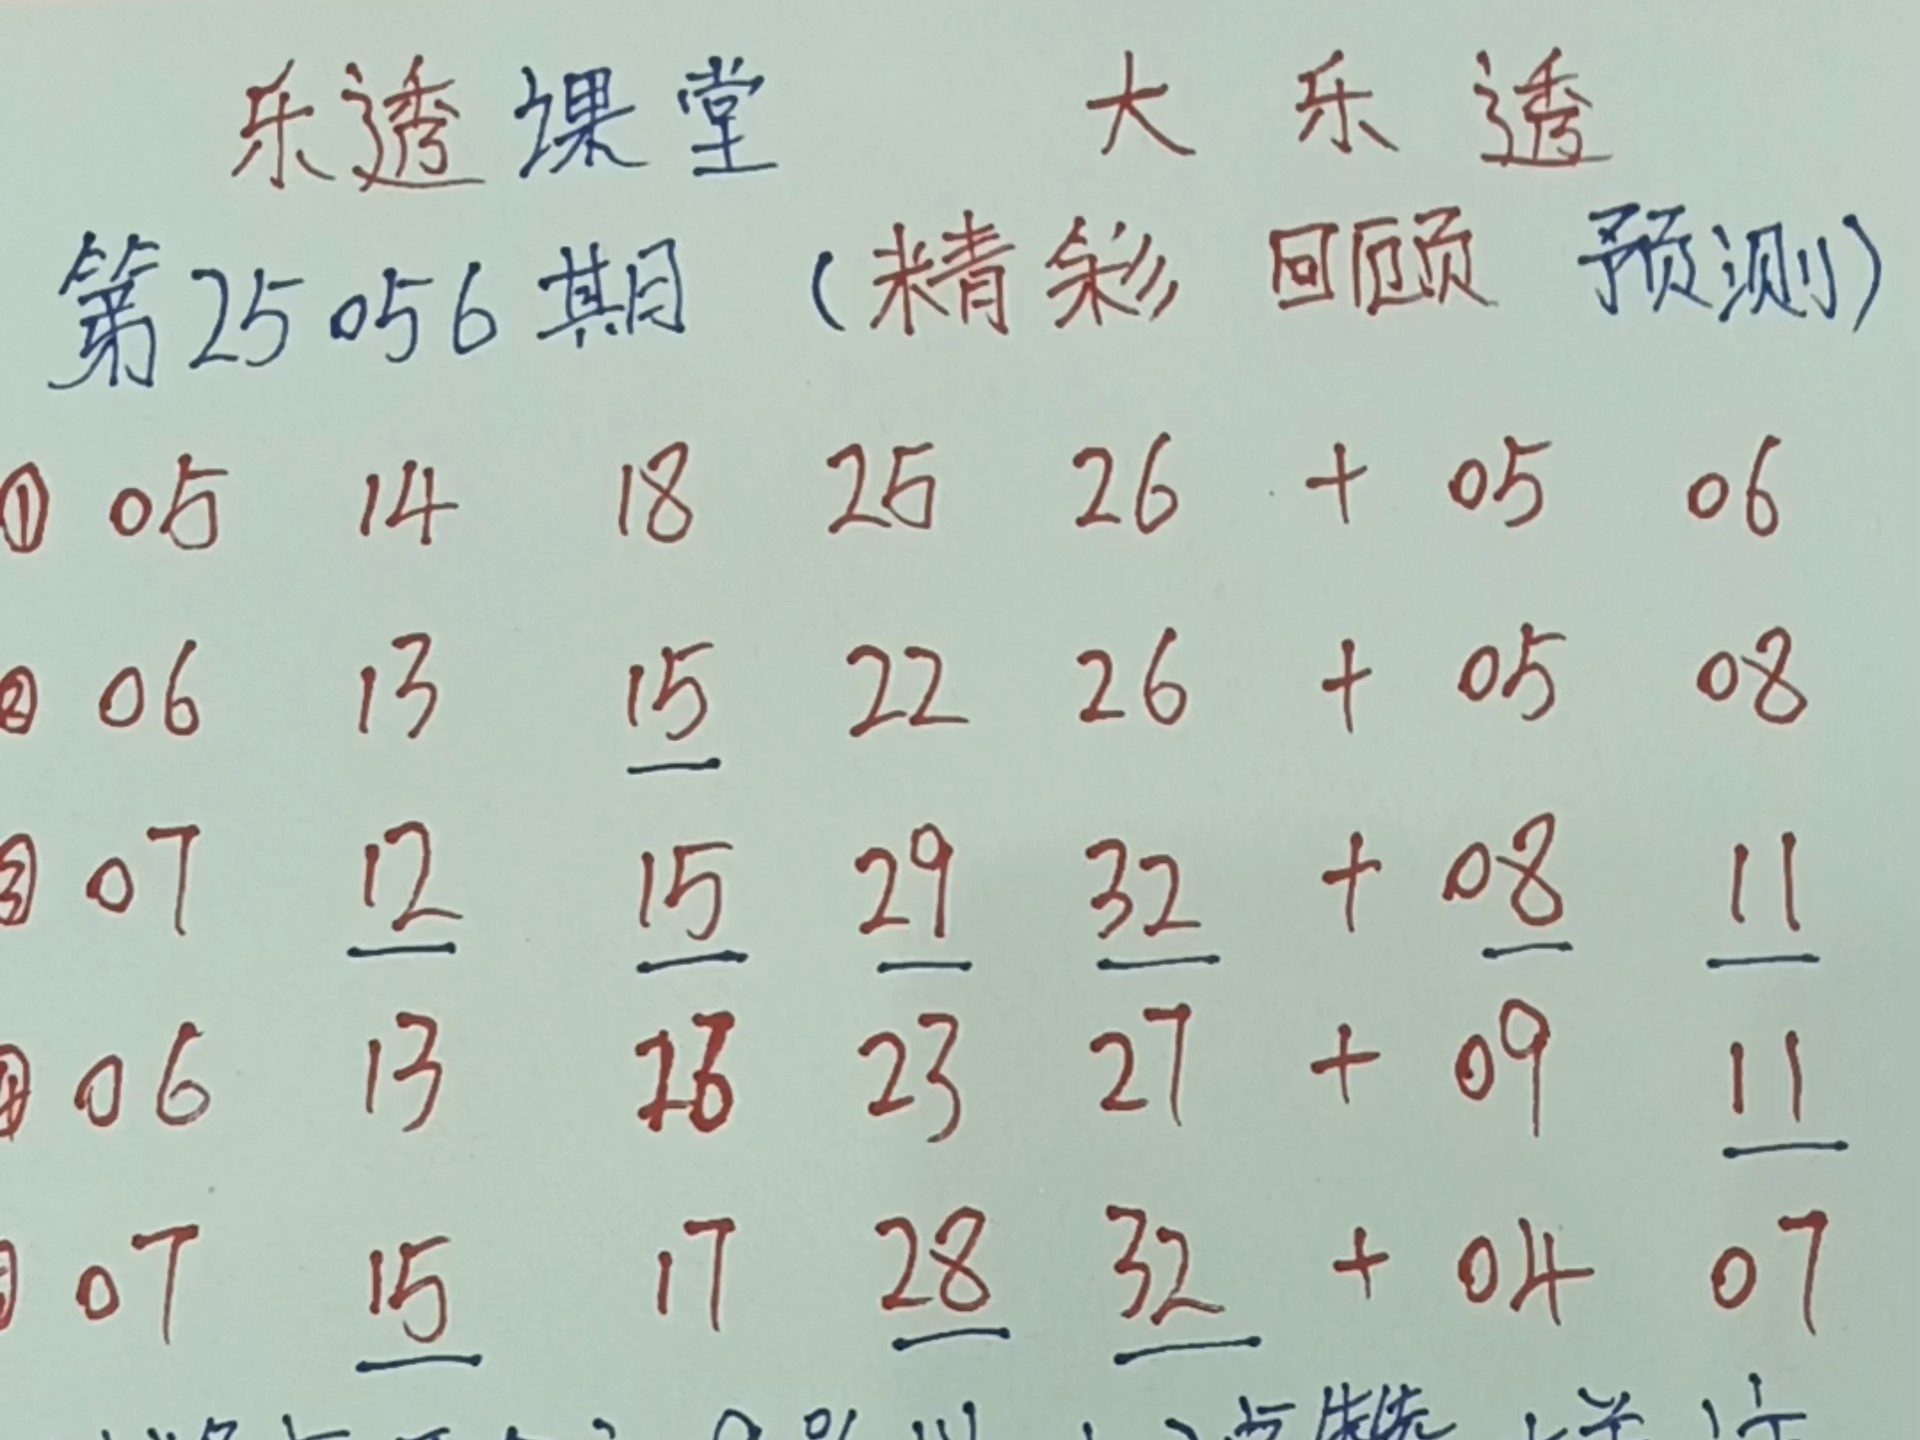 乐透课堂 大乐透
第25056期（精彩回顾预测）
① 05 14 18 25 26 + 05 06
② 06 13 15 22 26 + 05 08
③ 07 12 15 29 32 + 08 11
④ 06 13 23 27 + 09 11
07 15 17 28 32 + 04 07